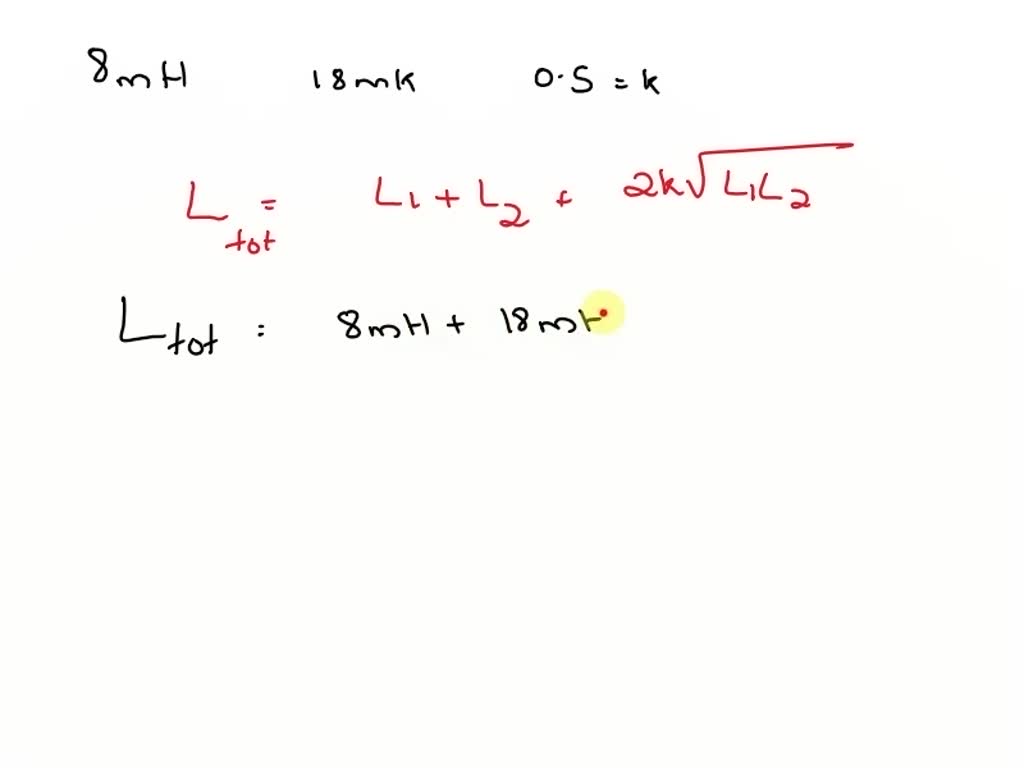 8mH 18mK 0.5 = k
L tot = L1 + L2 + 2k√L1L2
L tot = 8mH + 18mH